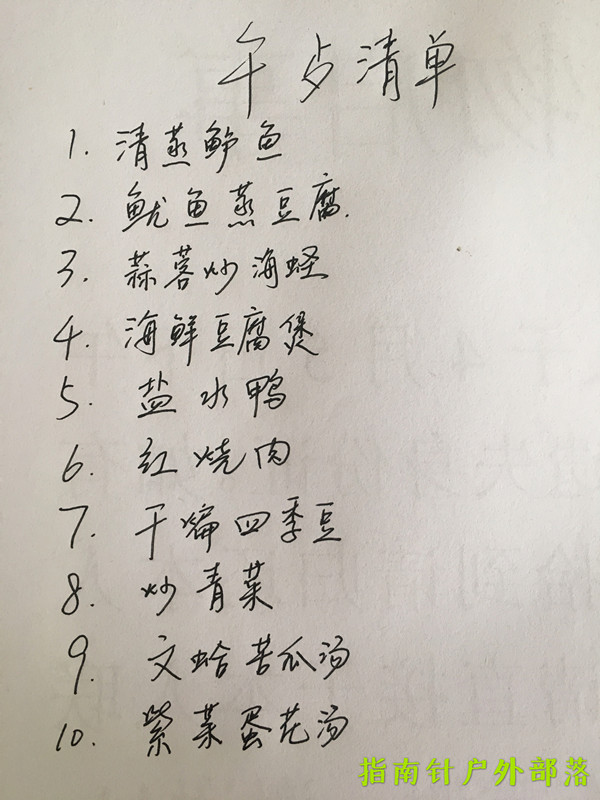 午歺清单
1. 清蒸鲈鱼
2. 鱿鱼蒸豆腐.
3. 蒜蓉炒海蛏
4. 海鲜豆腐煲
5. 盐水鸭
6. 红烧肉
7. 干煸四季豆
8. 炒青菜
9. 文蛤苦瓜汤
10. 紫菜蛋花汤
指南针户外部落